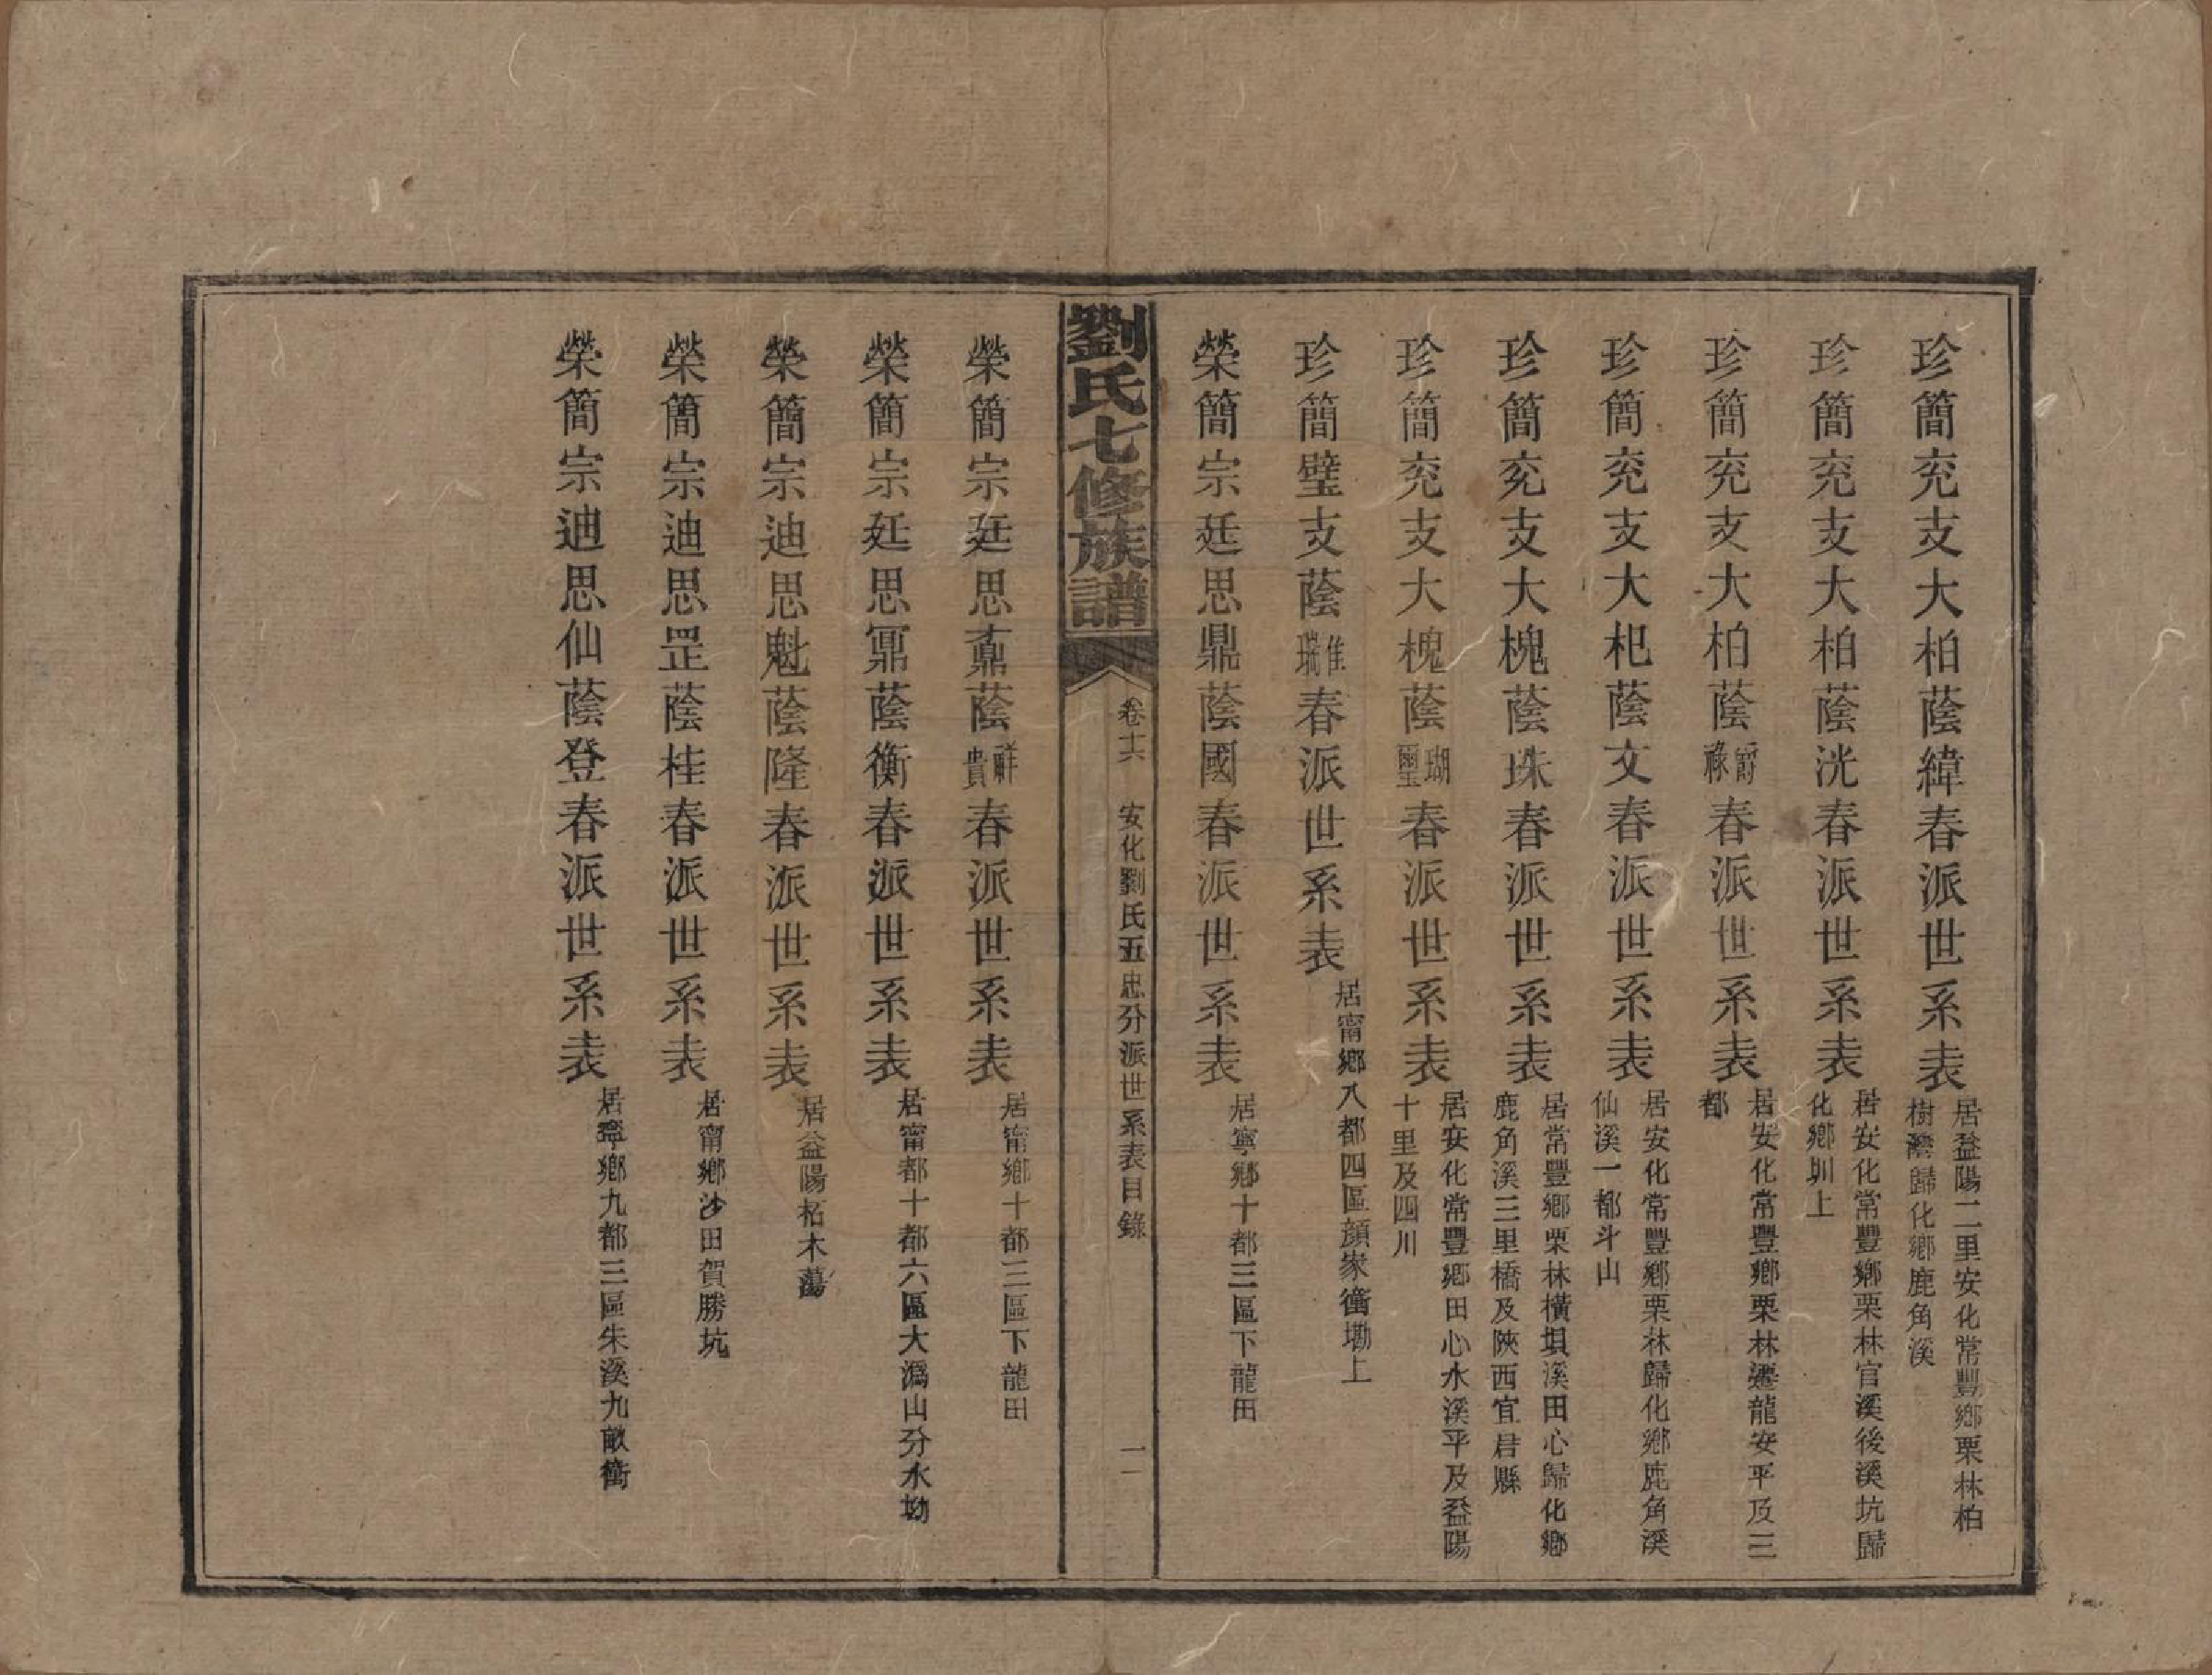 珍簡兖支大柏蔭緯春派世系表 居益陽二里安化常豐鄉栗林柏
樹灣歸化鄉鹿角溪
珍簡兖支大柏蔭洸春派世系表 居安化常豐鄉栗林官溪後溪坑歸
化鄉圳上
珍簡兖支大柏蔭爵祿春派世系表 居安化常豐鄉栗林遷龍安平及三
都
珍簡兖支大杞蔭文春派世系表 居安化常豐鄉栗林歸化鄉鹿角溪
仙溪一都斗山
珍簡兖支大槐蔭珠春派世系表 居常豐鄉栗林橫垻溪田心歸化鄉
鹿角溪三里橋及陜西宜君縣
珍簡兖支大槐蔭瑚璽春派世系表 居安化常豐鄉田心水溪平及益陽
十里及四川
珍簡璧支蔭惟瑞春派世系表 居甯鄉八都四區顔家衝墈上
榮簡宗廷思鼎蔭國春派世系表 居寧鄉十都三區下龍田
劉氏七修族譜 卷十六 安化劉氏五忠分派世系表目錄 二
榮簡宗廷思鼒蔭祥貴春派世系表 居甯鄉十都三區下龍田
榮簡宗廷思鼏蔭衡春派世系表 居甯都十都六區大潙山分水坳
榮簡宗迪思魁蔭隆春派世系表 居益陽柘木蕩
榮簡宗迪思罡蔭桂春派世系表 居甯鄉沙田賀勝坑
榮簡宗迪思仙蔭登春派世系表 居寧鄉九都三區朱溪九畝衝